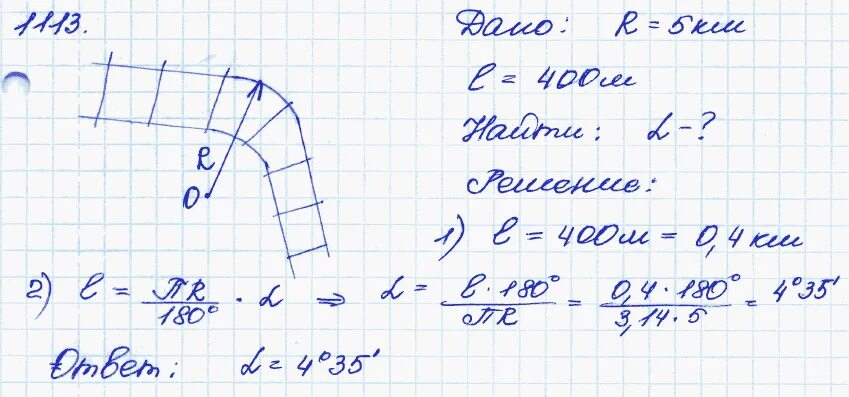 1113.
Дано: R = 5км
l = 400м
Найти: α - ?
Решение:
R
O
1) l = 400м = 0,4км
2) l = ПR/180° · α ⇒ α = l · 180°/ПR = 0,4 · 180°/3,14 · 5 = 4°35'
Ответ: α = 4°35'